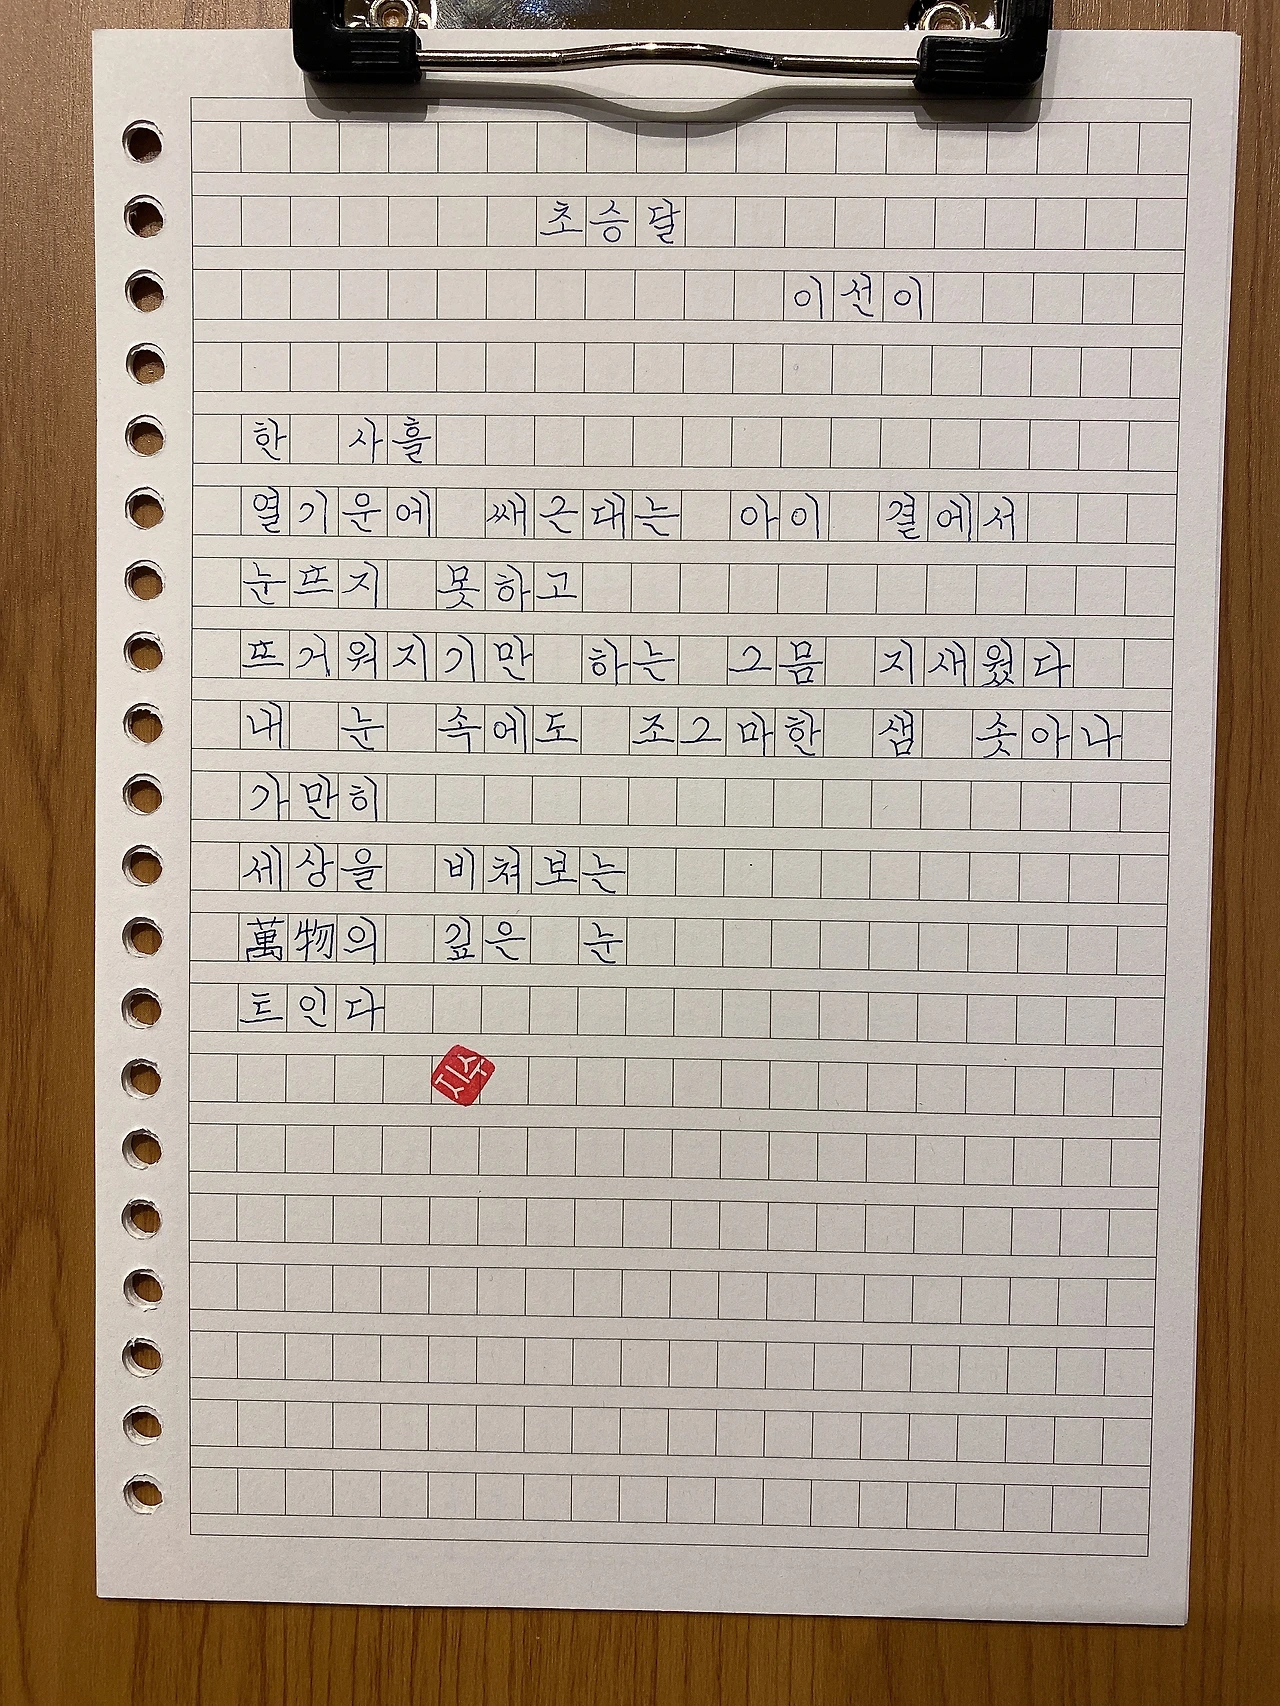 초승달
이선이
한 사흘
열기운에 쌔근대는 아이 곁에서
눈뜨지 못하고
뜨거워지기만 하는 그믐 지새웠다
내 눈 속에도 조그마한 샘 솟아나
가만히
세상을 비쳐보는
萬物의 깊은 눈
트인다
지수